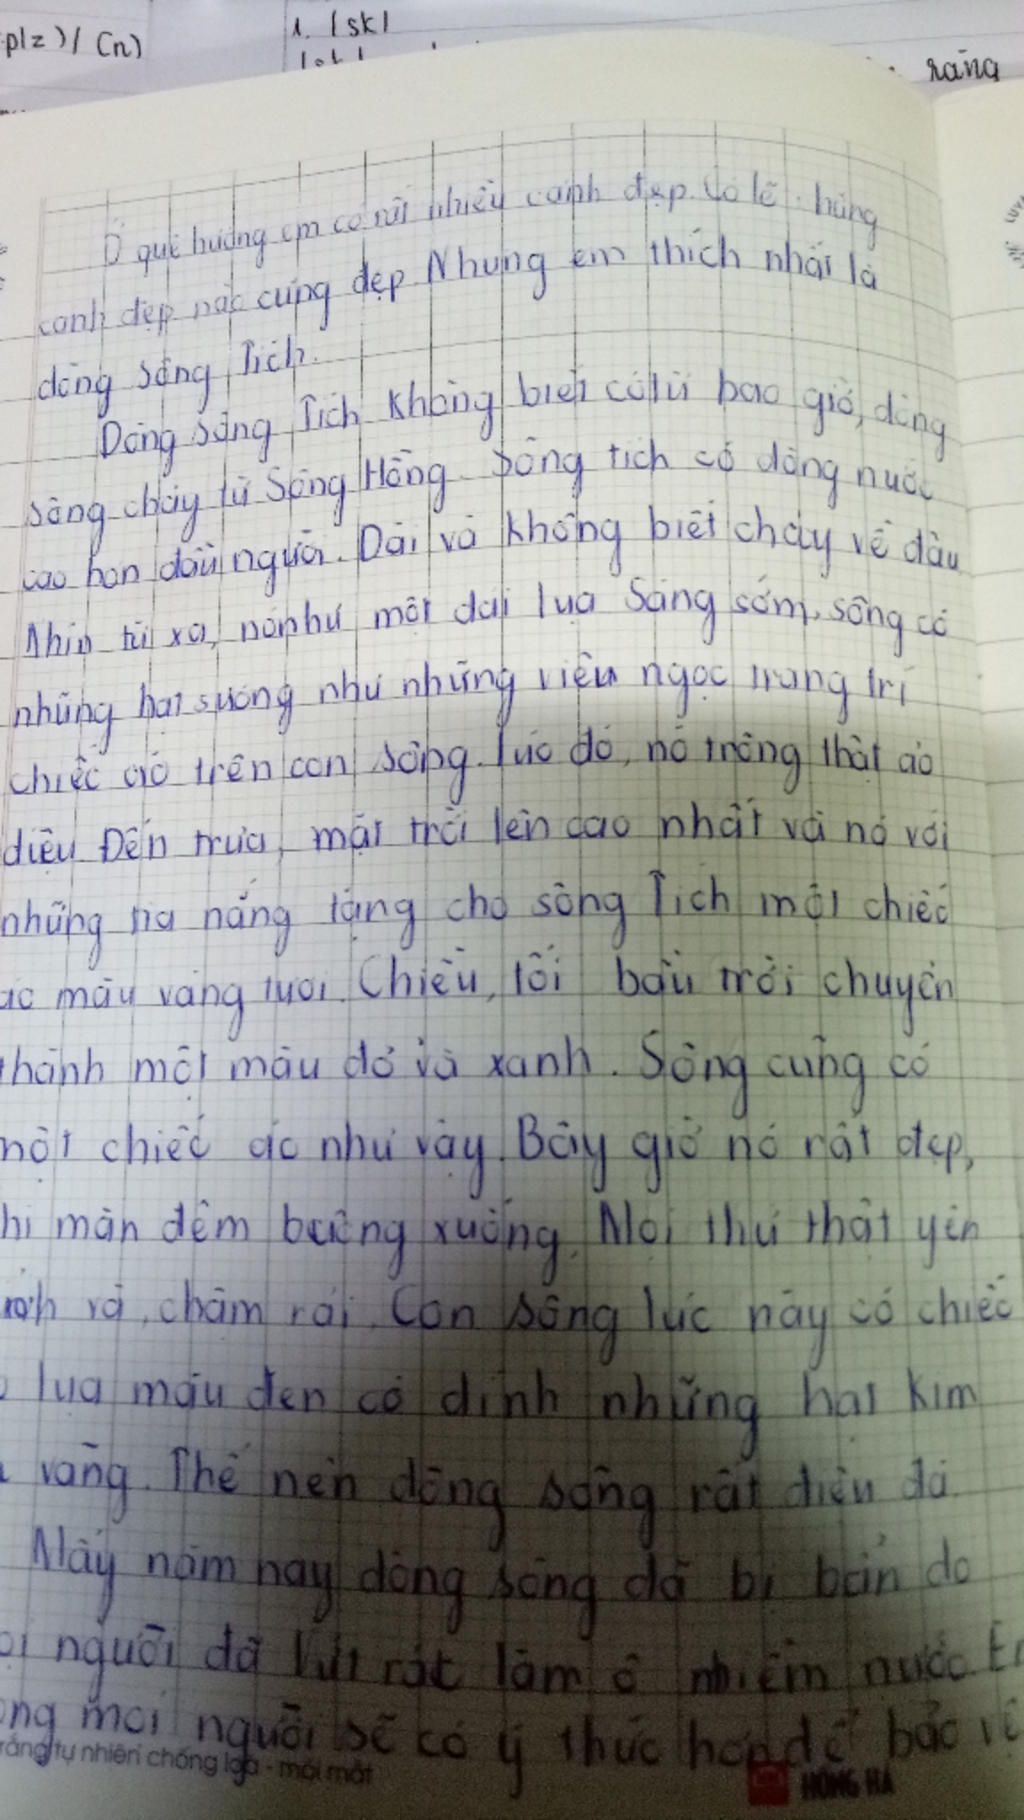 p/z)/ (n)
1. /sk/
răng
Ở quê hương em có rất nhiều cảnh đẹp. Có lẽ hững
cảnh đẹp nào cũng đẹp Nhưng em thích nhất là
dòng sông Tích.
Dòng sông Tích Không biết có từ bao giờ, dòng
sông chảy từ Sông Hồng. Sông tích có dòng nước
cao hơn đầu người. Dài và không biết chảy về đâu
Nhìn từ xa, nó như một dải lụa Sáng sớm, sông có
những hạt sương như những viên ngọc trang trí
chiếc áo trên con sông. lúc đó, nó trông thật ảo
diệu Đến trưa, mặt trời lên cao nhất và nó với
những tia nắng tặng cho sông Tích một chiếc
áo màu vàng tươi. Chiều, tối bầu trời chuyển
thành một màu đỏ và xanh. Sông cũng có
một chiếc áo như vậy. Bây giờ nó rất đẹp,
hi màn đêm buông xuống. Mọi thứ thật yên
và, chậm rãi. Con sông lúc này có chiếc
lụa màu đen có dính những hạt kim
vàng. Thế nên dòng sông rất điệu đà.
Mấy năm nay dòng sông đã bị bẩn do
ọi người đã vứt rác làm ô nhiễm nước. E
ong mọi người sẽ có ý thức hơn để bảo vệ
rắng tự nhiên chống lóa - mỏi mắt
HỒNG HÀ